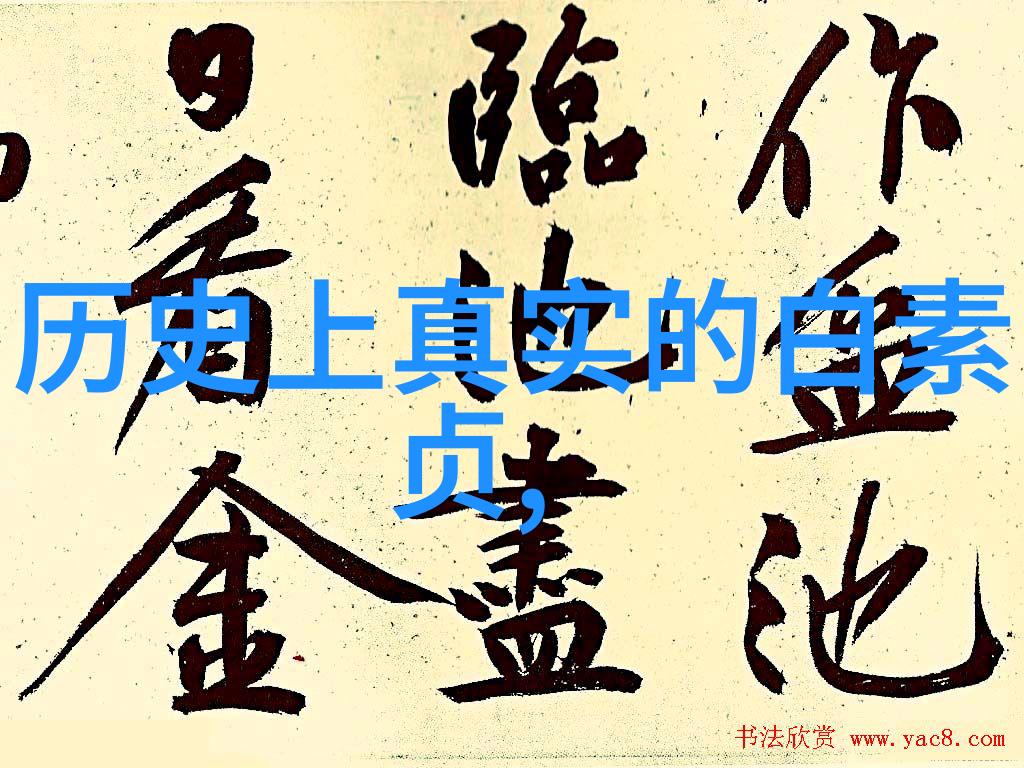 历史上真实的白素
贞,
作盆池
臨池盡
日看金
书法欣赏 www.yac8.com